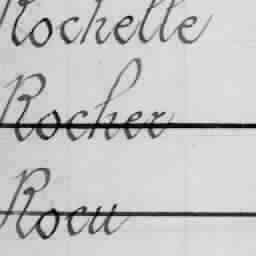 Rochelle
Rocher
Rocu